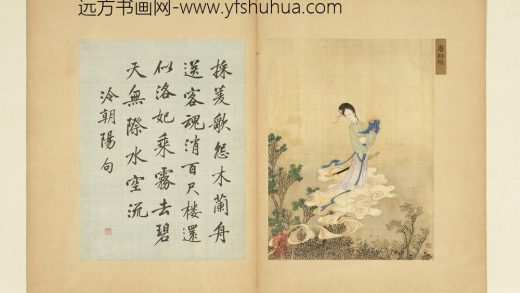 远方书画网-www.yfshuhua.com
採菱歌怨木蘭舟
送客魂消百尺樓還
似洛妃乘霧去碧
天無際水空流
冷朝陽句